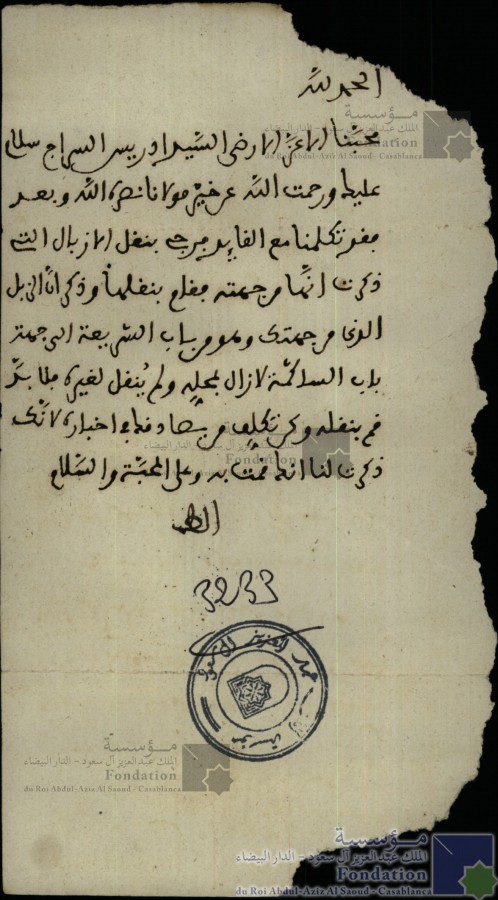 الحمد لله
محبنا الاعز الارضى السيد ادريس السراج سلام
عليك ورحمت الله عن خير مولانا نصره الله وبعد
فقد تكلمنا مع القايد فرجي بنقل الازبال التي
ذكرت انها من جهته فقام بنقلها وذكر ان الزبل
الذي من جهتك وهو من باب الشريعة الى جهة
باب الساكمة لازال بمحله ولم ينقل لغيره فلا بد
قم بنقله وكن تكلف من
ذكرت لنا انك قمت به وعلى المحبة والسلام
3233
مؤسسة
الملك عبد العزيز آل سعود - الدار البيضاء
Fondation
du Roi Abdul-Aziz Al Saoud - Casablanca